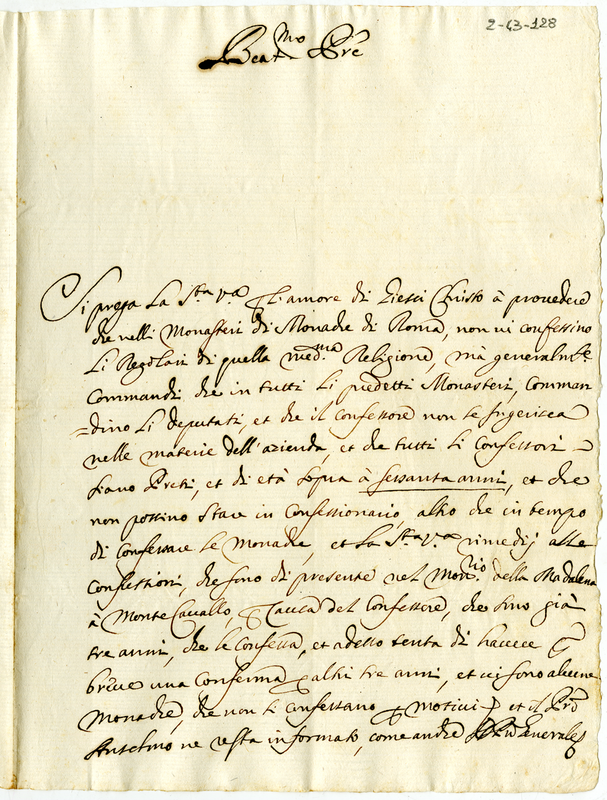 2-43-128
Beat.mo Pre
Si prega la S.ta V.a per l'amore di Giesù Christo à provedere
che nelli Monasteri di Monache di Roma, non vi confessino
li Regolari di quella med.ma Religione, mà generalm.te
Commandi, che in tutti li predetti Monasteri, comman
=dino li deputati, et che il confessore non se ingerisca
nelle materie dell'azienda, et che tutti li Confessori
siano Preti, et di età sopra à sessanta anni, et che
non possino stare in Confessionario, altro che in tempo
di confessare le Monache, et la S.ta V.a rimedij alle
che sono di presente nel Mon.rio della Madalena
à Monte Cavallo, per causa del Confessore, che sino già
tre anni, che le Confessa, et adesso tenta di havere per
breve una Conferma per altri tre anni, et vi sono alcune
Monache, che non si confessano per motivi et il Pre
Anselmo ne resta informato, come anche Generale